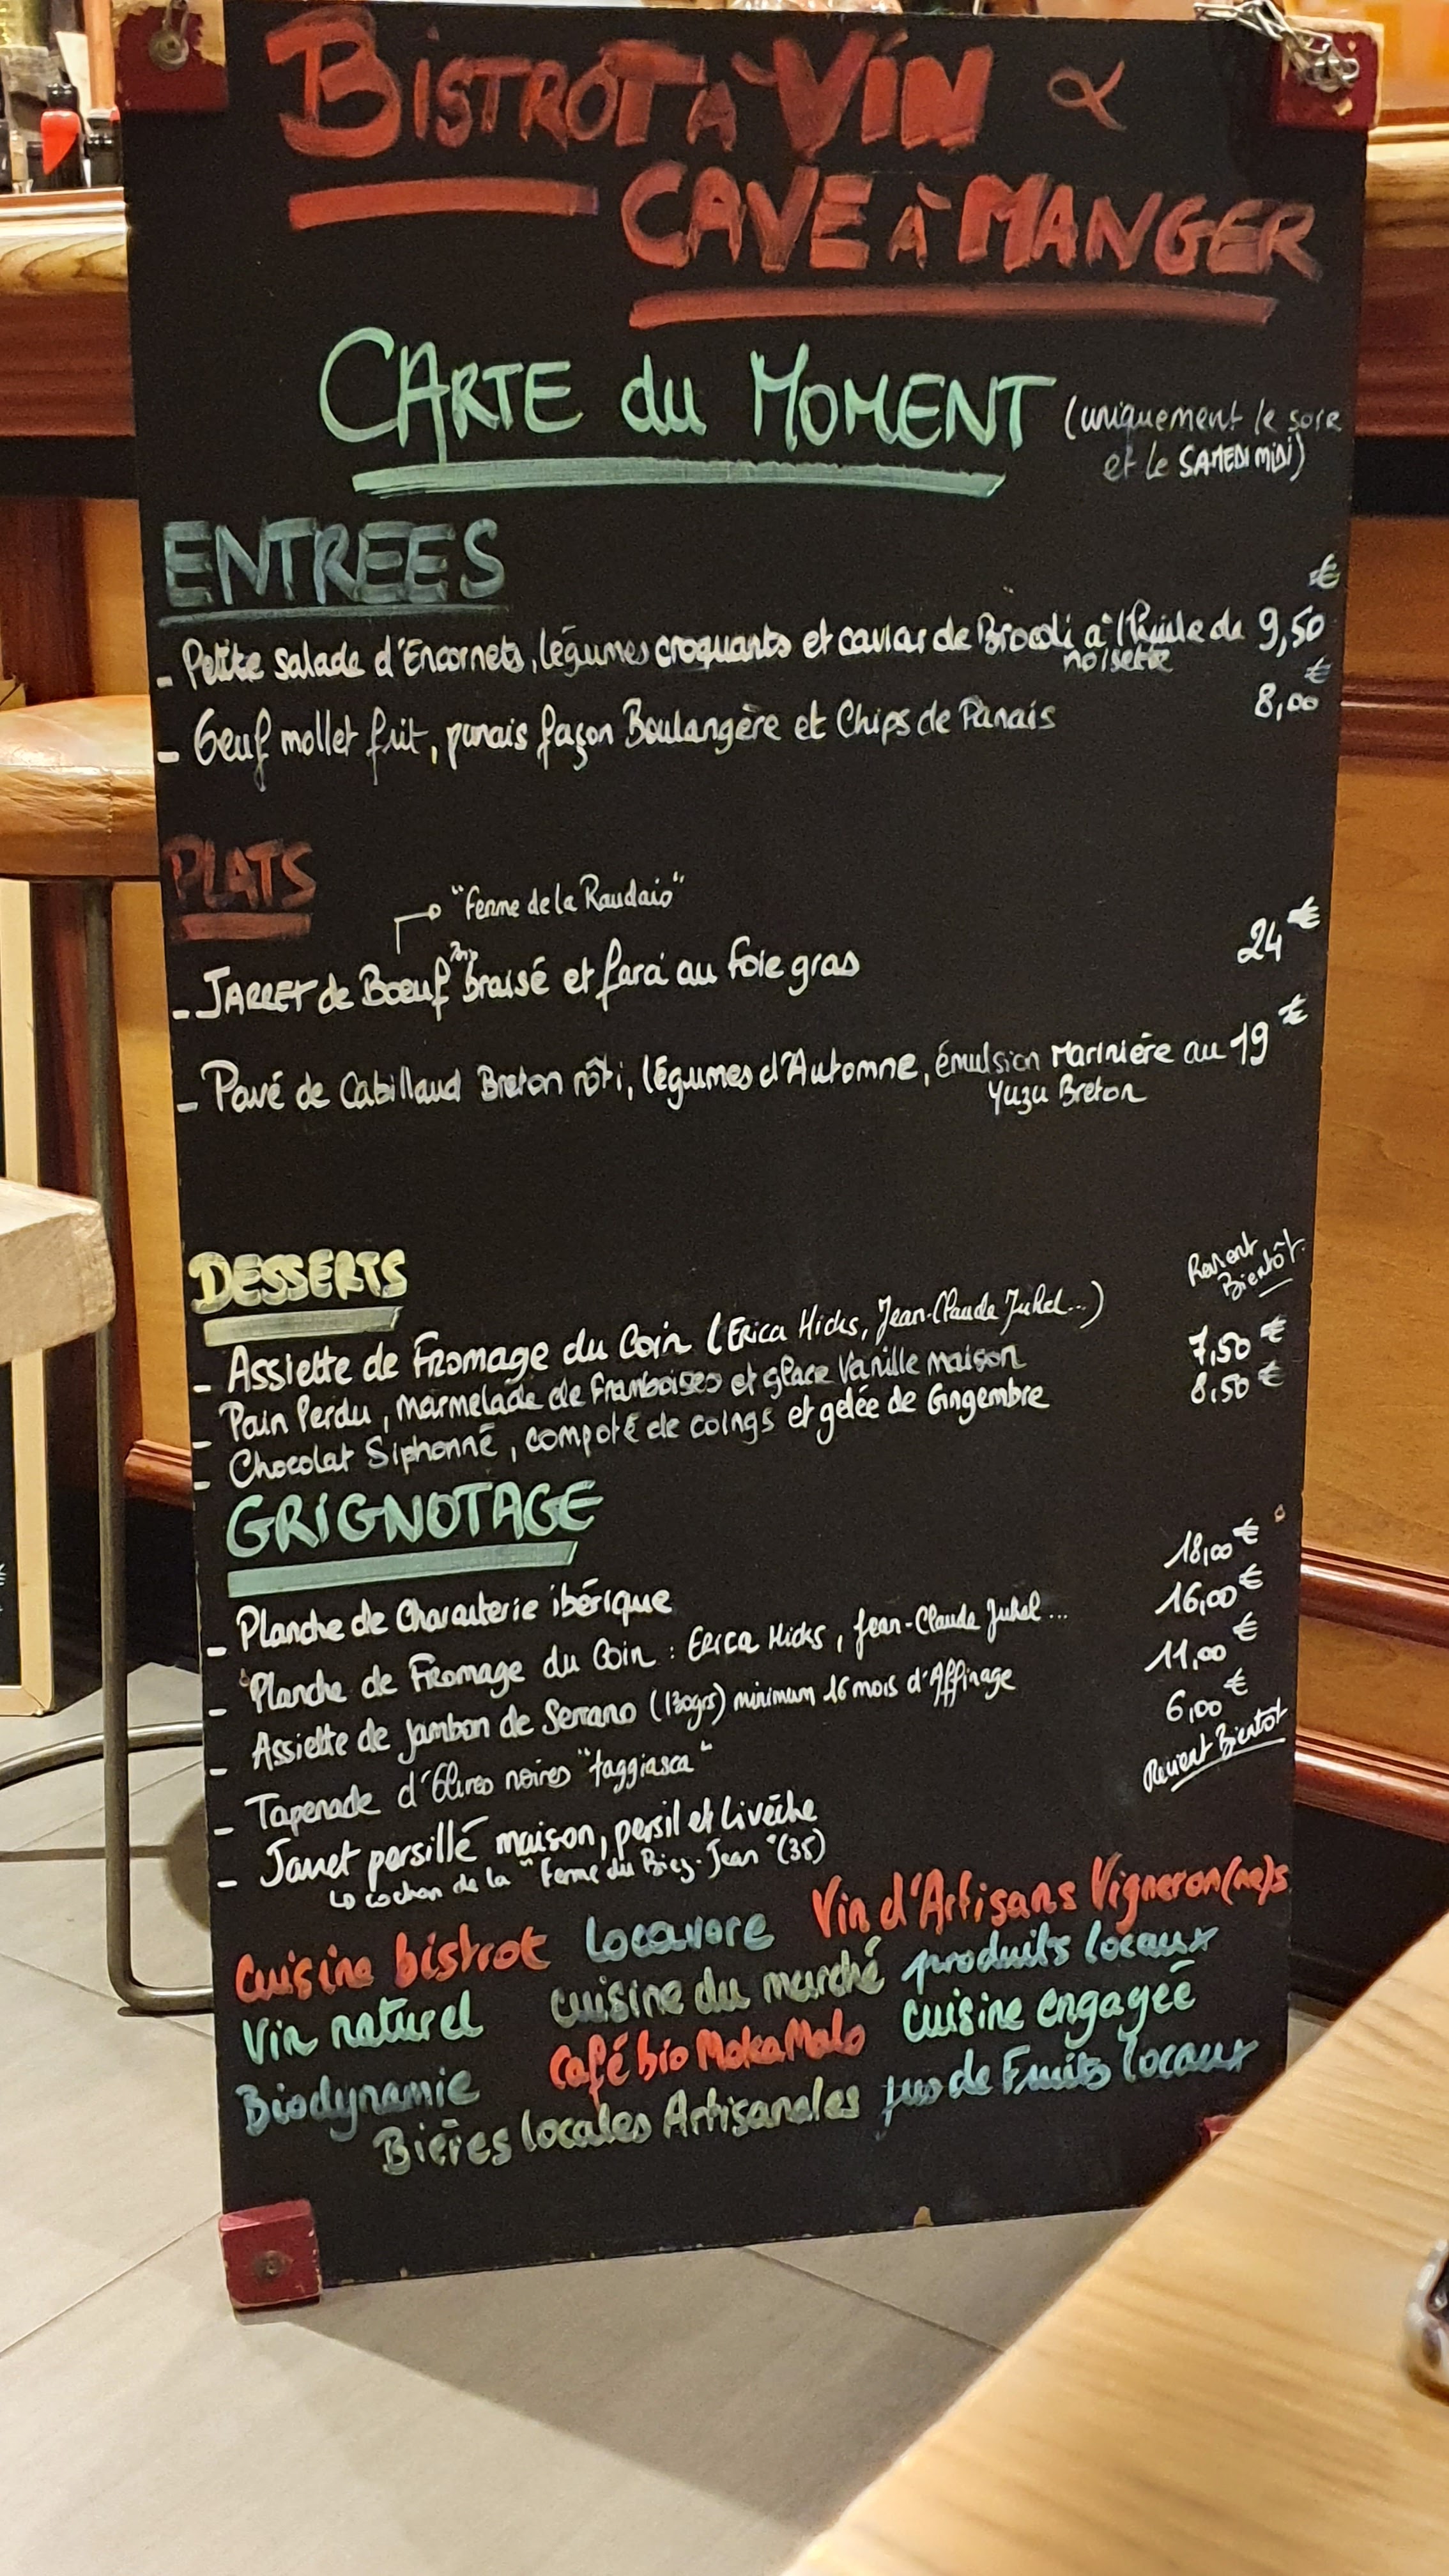 BISTROT À VIN &
CAVE À MANGER
CARTE du MOMENT (uniquement le soir
et le SAMEDI MIDI)
ENTREES
€
- Petite salade d'Encornets, légumes croquants et caviar de Brocoli à l'Huile de 9,50
noisette
€
- Oeuf mollet frit, panais façon Boulangère et Chips de Panais 8,00
PLATS
"Ferme de la Raudais"
- JARRET de Boeuf braisé et farci au foie gras 24 €
- Pavé de Cabillaud Breton rôti, légumes d'Automne, émulsion Marinière au 19 €
Yuzu Breton
DESSERTS
- Assiette de Fromage du Coin (Erica Hicks, Jean-Claude Juhel...) Revient Bientôt
- Pain Perdu, marmelade de Framboises et glace Vanille maison 7,50 €
- Chocolat Siphonné, compoté de coings et gelée de Gingembre 8,50 €
GRIGNOTAGE
- Planche de Charcuterie ibérique 18,00 €
- Planche de Fromage du Coin : Erica Hicks, Jean-Claude Juhel ... 16,00 €
- Assiette de Jambon de Serrano (130grs) minimum 16 mois d'Affinage 11,00 €
- Tapenade d'Olives noires "taggiasca" 6,00 €
- Jarret persillé maison, persil et Livèche Revient Bientôt
cochon de la "Ferme du Biez-Jean" (35)
Cuisine bistrot Locavore Vin d'Artisans Vigneron(ne)s
Vin naturel cuisine du marché produits locaux
Biodynamie Café bio MokaMalo cuisine engagée
Bières locales Artisanales jus de Fruits locaux